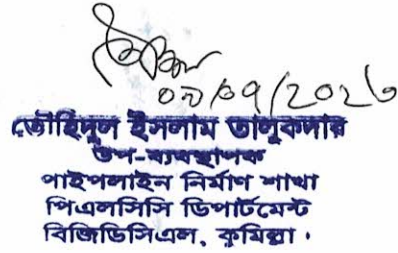 তৌহিদুল ইসলাম তালুকদার
উপ-ব্যবস্থাপক
পাইপলাইন নির্মাণ শাখা
পিএলসিসি ডিপার্টমেন্ট
বিজিডিসিএল, কুমিল্লা।